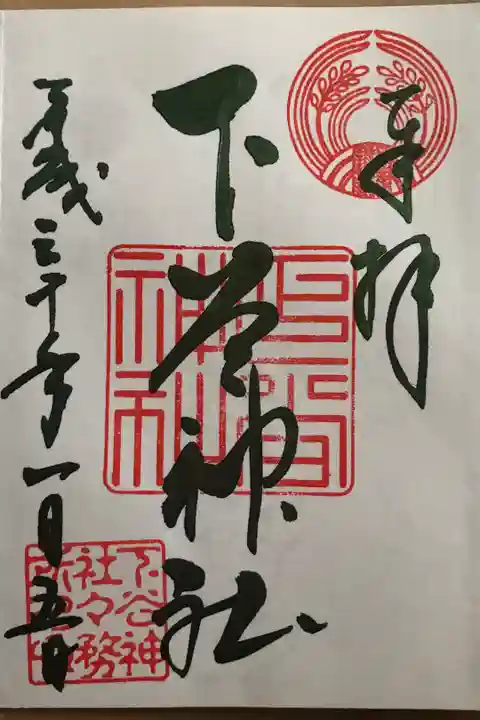 奉拝
下谷神社
平成三十年一月五日
下谷神
社々務
所之印